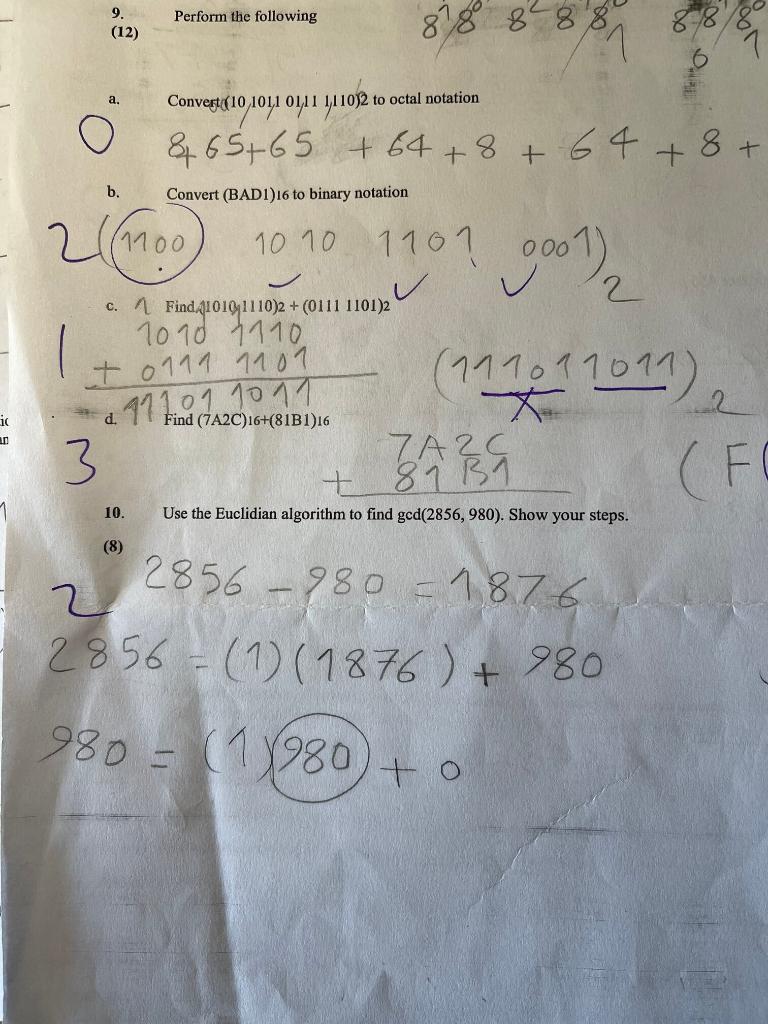 9. Perform the following
(12)
a. Convert (10 1011 0111 1110)2 to octal notation
0 8+65+65 + 64 + 8 + 64 + 8 +
b. Convert (BAD1)16 to binary notation
2 (1100 1010 1101 0001)2
c. Find (1010 1110)2 + (0111 1101)2
1010 1110
1 + 0111 1101
11101 1011 (111011011)2
d. Find (7A2C)16+(81B1)16
3 7A2C
+ 81B1 (F
10. Use the Euclidian algorithm to find gcd(2856, 980). Show your steps.
(8)
2 2856 - 980 = 1876
2856 = (1)(1876) + 980
980 = (1)980 + 0